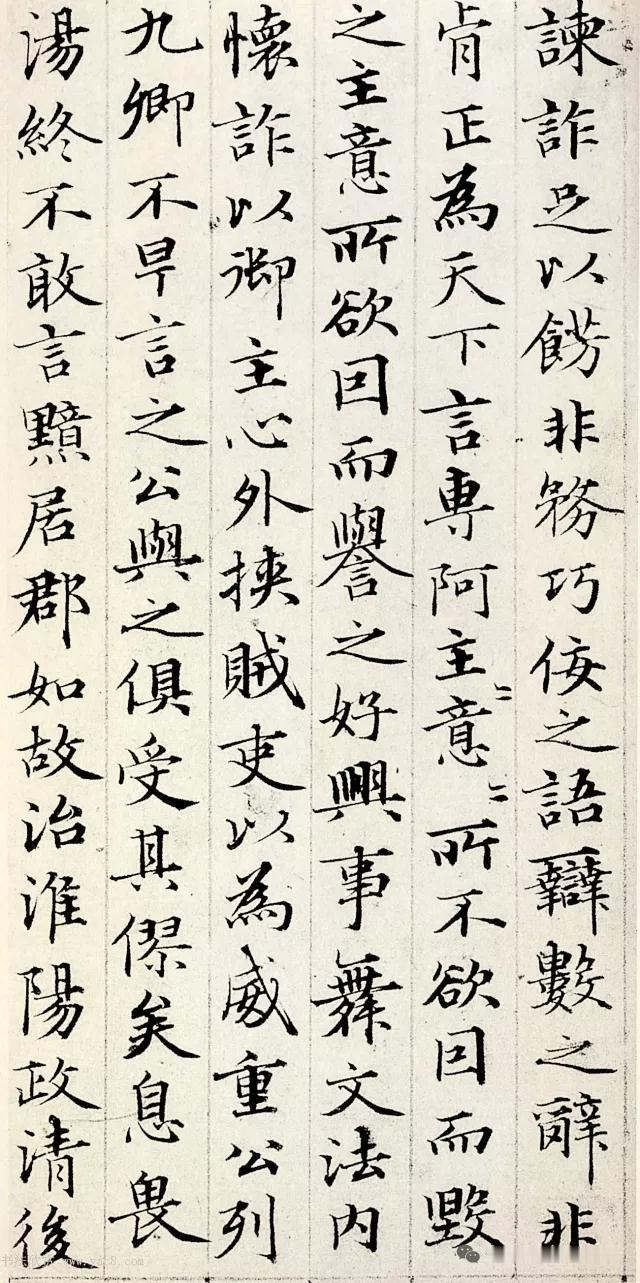 諫詐足以飾非務巧佞之語辯數之辭非
肯正為天下言專阿主〻意〻所不欲因而毀
之主意所欲因而譽之好興事舞文法內
懷詐以御主心外挾賊吏以為威重公列
九卿不早言之公與之俱受其僇矣息畏
湯終不敢言黯居郡如故治淮陽政清後